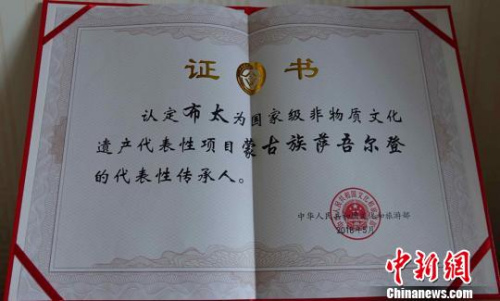 证 书
认定布太为国家级非物质文化
遗产代表性项目蒙古族萨吾尔登
的代表性传承人。
中华人民共和国文化和旅游部
2018年5月
中新网
Chinanews.com